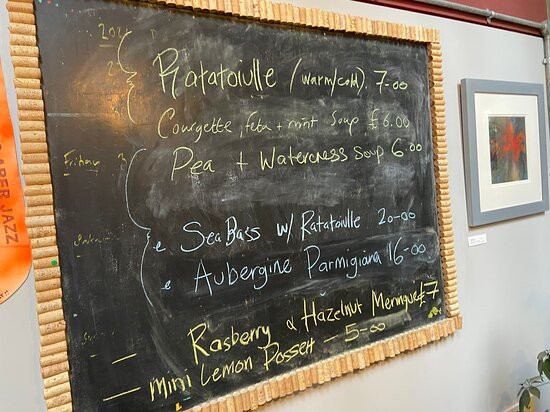 Ratatoiulle (warm/cold). 7-00
Courgette, feta + mint Soup £6.00
Friday
Pea + Watercress Soup 6.00
Sea Bass w/ Ratatoiulle 20-00
Aubergine Parmigiana 16-00
Rasberry & Hazelnut Meringue £7
— mini Lemon Possett - 5-00
JAZZ